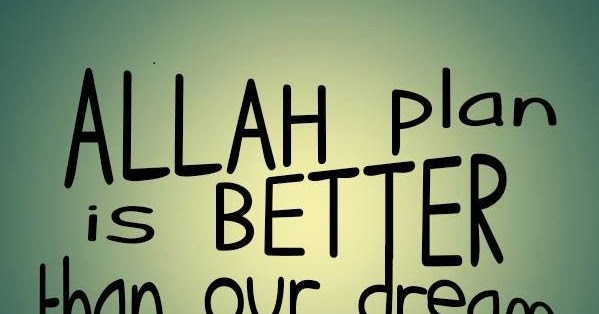 ALLAH plan
is BETTER
than our dream